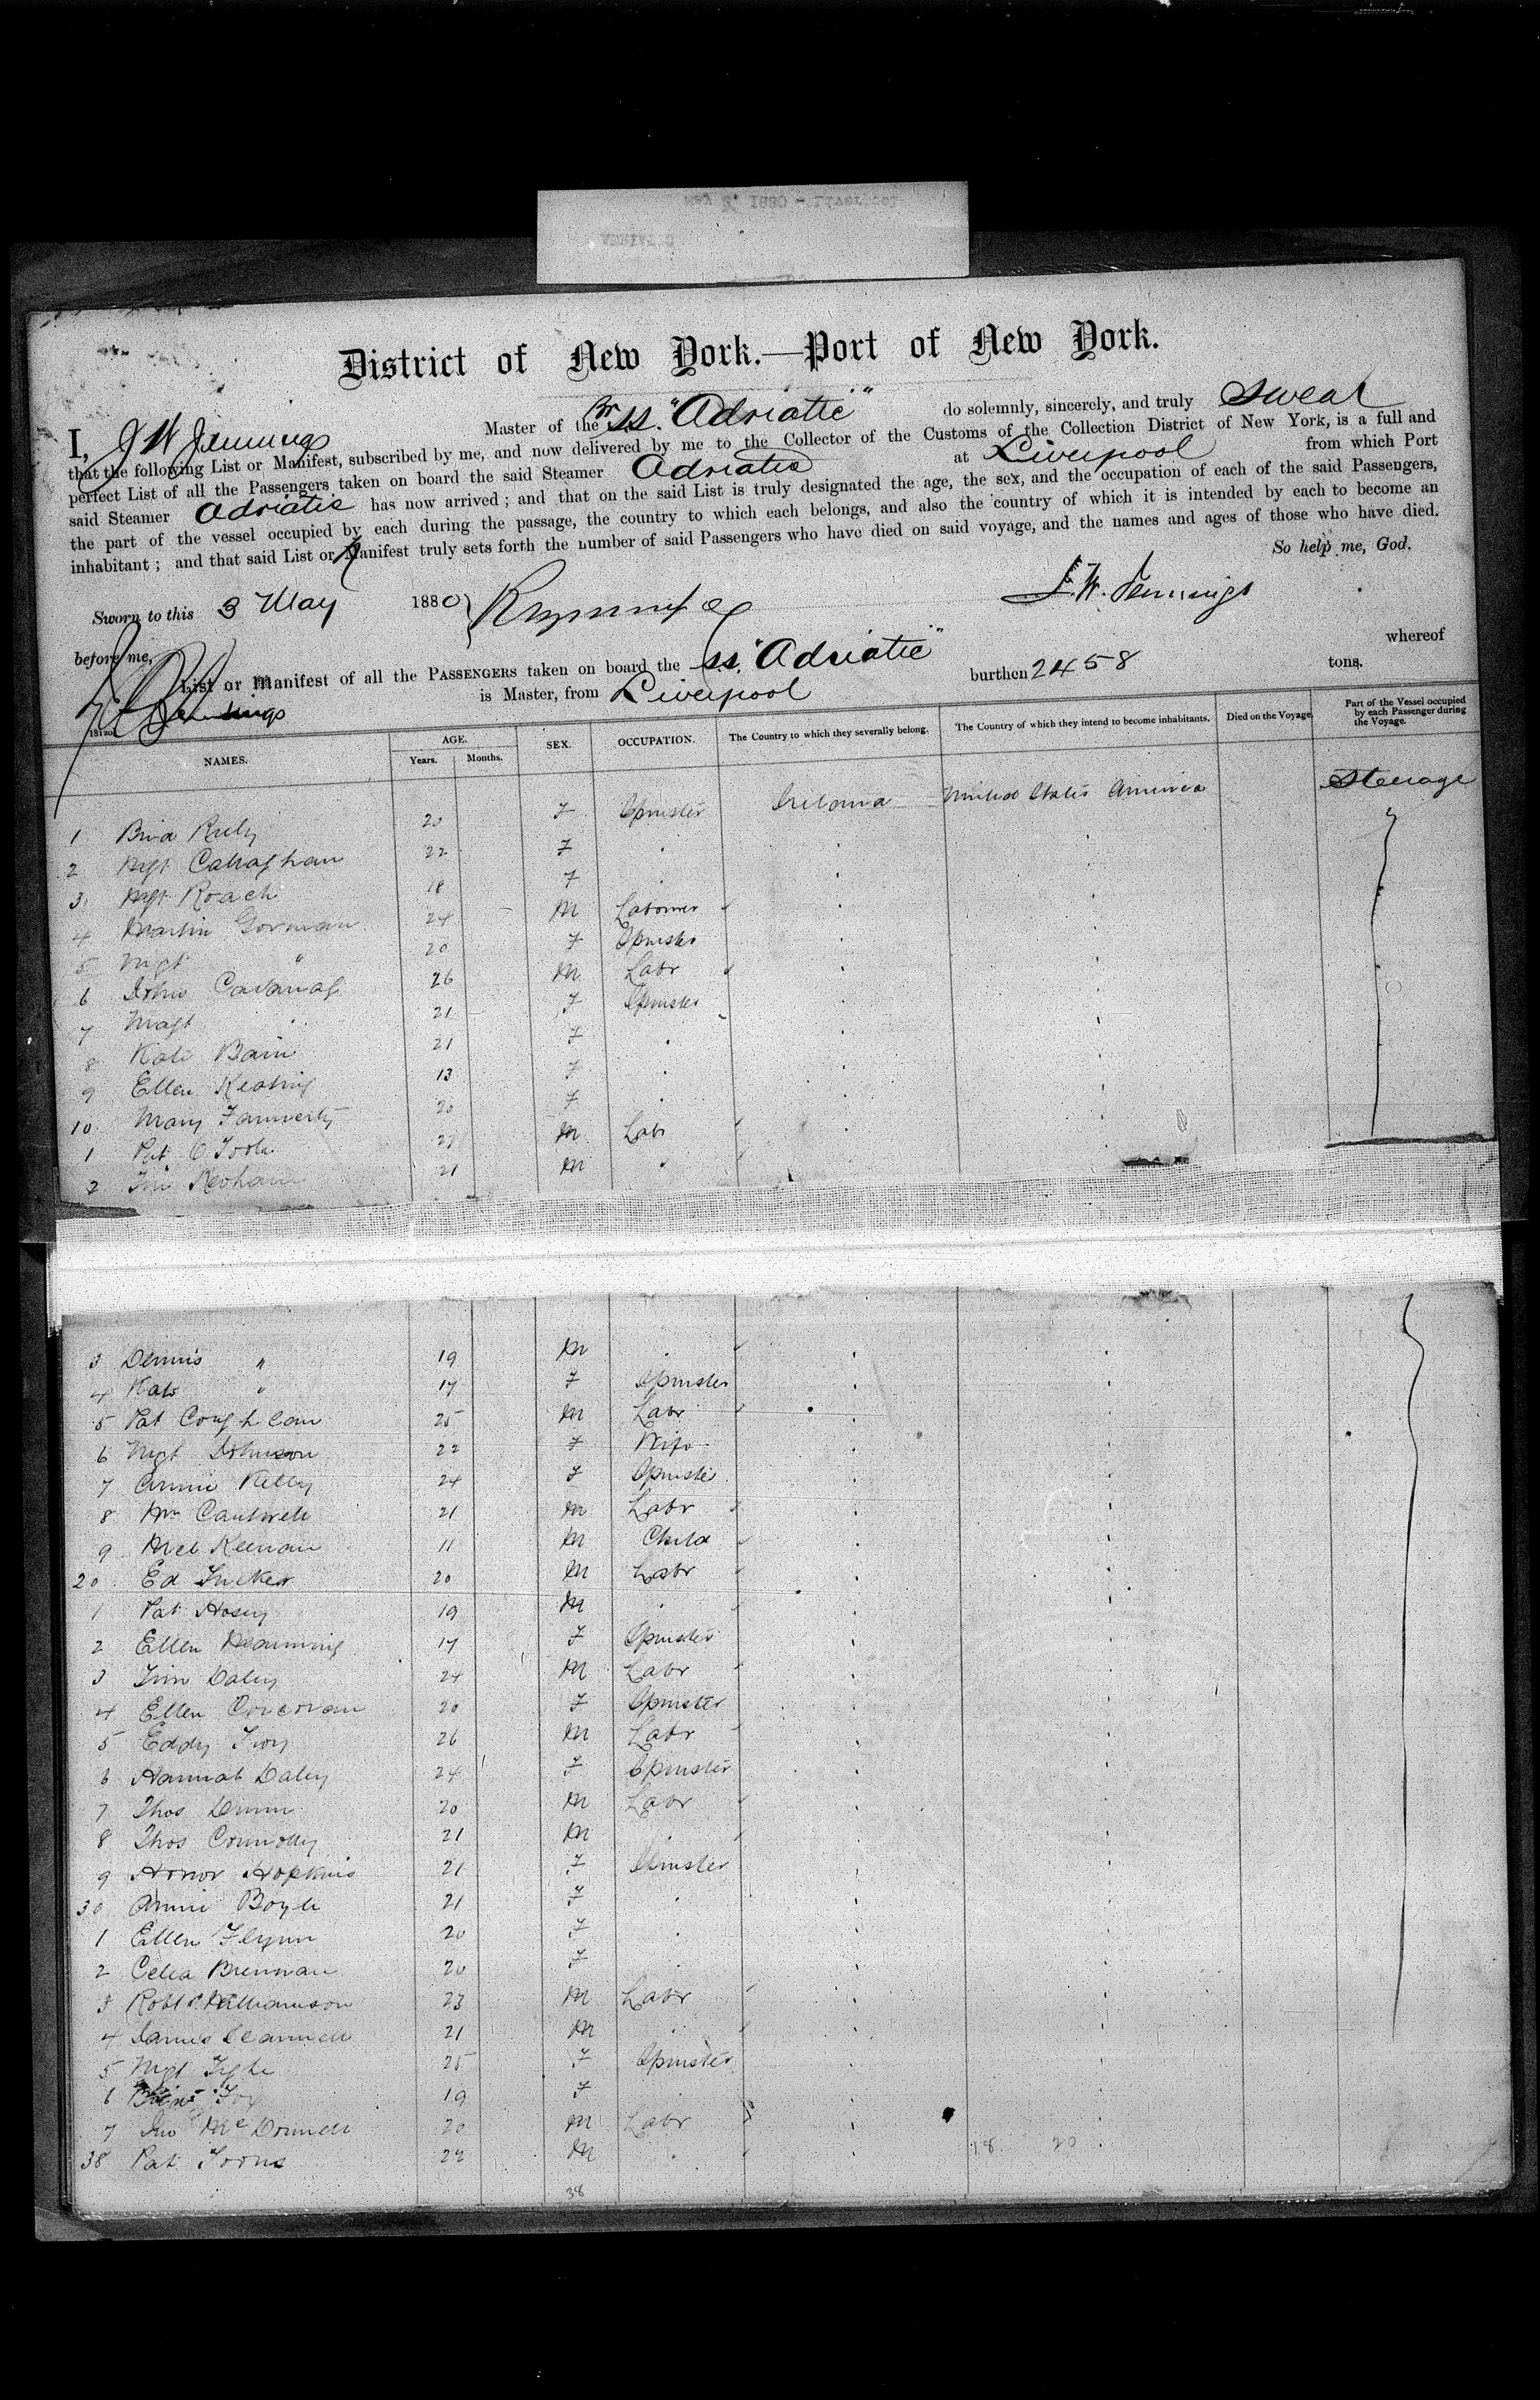 District of New York.—Port of New York.
I, J W Jennings Master of the Br SS. "Adriatic" do solemnly, sincerely, and truly swear
that the following List or Manifest, subscribed by me, and now delivered by me to the Collector of the Customs of the Collection District of New York, is a full and
perfect List of all the Passengers taken on board the said Steamer Adriatic at Liverpool from which Port
said Steamer Adriatic has now arrived; and that on the said List is truly designated the age, the sex, and the occupation of each of the said Passengers,
the part of the vessel occupied by each during the passage, the country to which each belongs, and also the country of which it is intended by each to become an
inhabitant; and that said List or Manifest truly sets forth the number of said Passengers who have died on said voyage, and the names and ages of those who have died.
So help me, God.
Sworn to this 3 May 1880 J. W. Jennings
before me,
List or Manifest of all the PASSENGERS taken on board the SS. "Adriatic" whereof
Jennings is Master, from Liverpool burthen 2458 tons.
NAMES. AGE. Years. Months. SEX. OCCUPATION. The Country to which they severally belong. The Country of which they intend to become inhabitants. Died on the Voyage. Part of the Vessel occupied by each Passenger during the Voyage.
1 20 F Spinster United States America Steerage
2 Mgt Callaghan 22 F
3 Mgt Roach 18 F
4 Martin Gorman 24 M Labourer
5 Mgt " 20 F Spinster
6 John Cavanag 26 M Labr
7 Magt 21 F Spinster
8 Kate Bain 21 F
9 Ellen Keating 13 F
10 Mary 20 F
1 Pat O Toole M Labr
2 Jim Keohane 21 M
3 Dennis " 19 M
4 Kate " 17 F Spinster
5 Pat Coughlan 25 M Labr
6 Mgt Johnson 22 F Wife
7 Annie Kelly 24 F Spinster
8 Wm Cantwell 21 M Labr
9 Keenan 11 M Child
20 Ed Tucker 20 M Labr
1 Pat Hosey 19 M
2 Ellen Manning 17 F Spinster
3 Jim Daley 24 M Labr
4 Ellen Corcoran 20 F Spinster
5 Eddy 26 M Labr
6 Hannah Daley 24 F Spinster
7 Thos Dunn 20 M Labr
8 Thos Connolly 21 M
9 Honor Hopkins 21 F Spinster
30 Annie Boyle 21 F
1 Ellen Flynn 20 F
2 Celia Brennan 20 F
3 Robt Williamson 23 M Labr
4 James 21 M
5 Mgt Tighe 25 F Spinster
6 19 F
7 Jno McDonnell 20 M Labr
38 Pat M
38
18 20